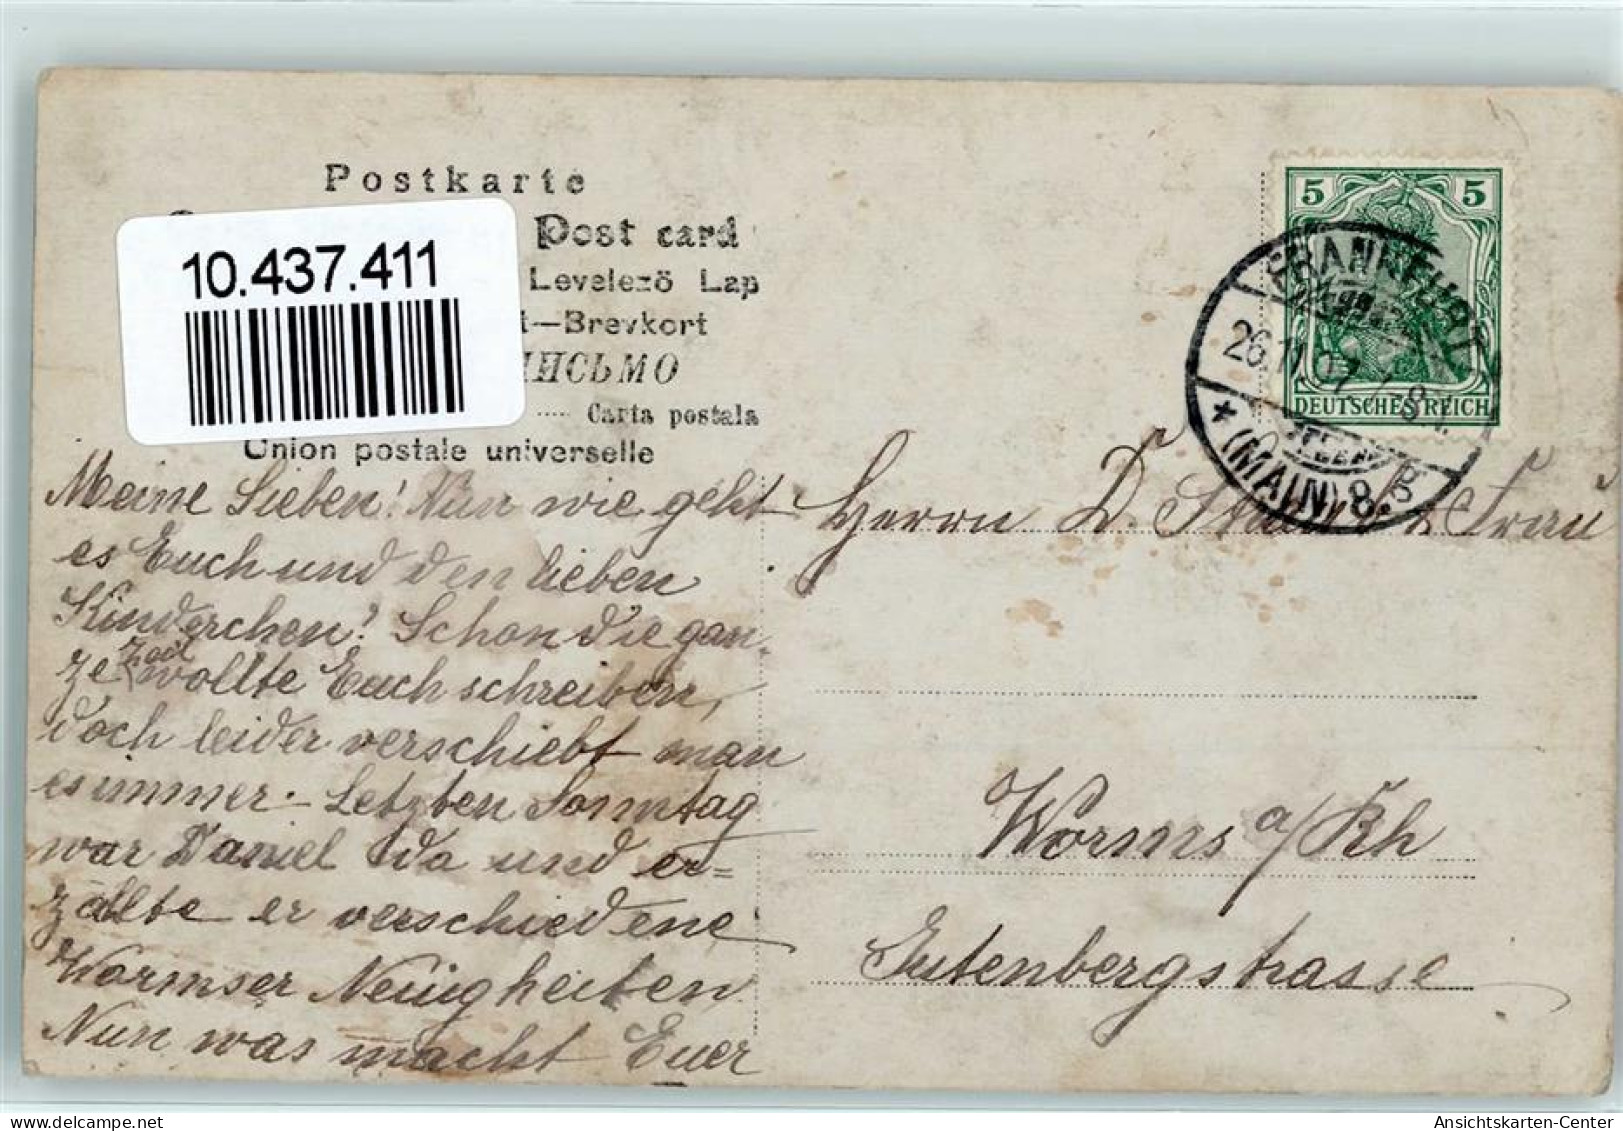 Postkarte
Post card
10.437.411
Levelező Lap
t—Brevkort
ПИСЬМО
Carta postala
Union postale universelle
5 5
DEUTSCHES REICH
FRANKFURT
26.11.07. 7-8
* (MAIN) 8.
Meine Lieben! Nun wie geht
es Euch und den lieben
Kinderchen? Schon die gan-
ze Zeit wollte Euch schreiben,
doch leider verschiebt man
es immer. - Letzten Sonntag
war Daniel da und er=
zälte er verschiedene
Wormser Neuigheiten.
Nun was macht Euer
Herrn D. & Frau
Worms a/Rh
Gutenbergstrasse
Ansichtskarten-Center